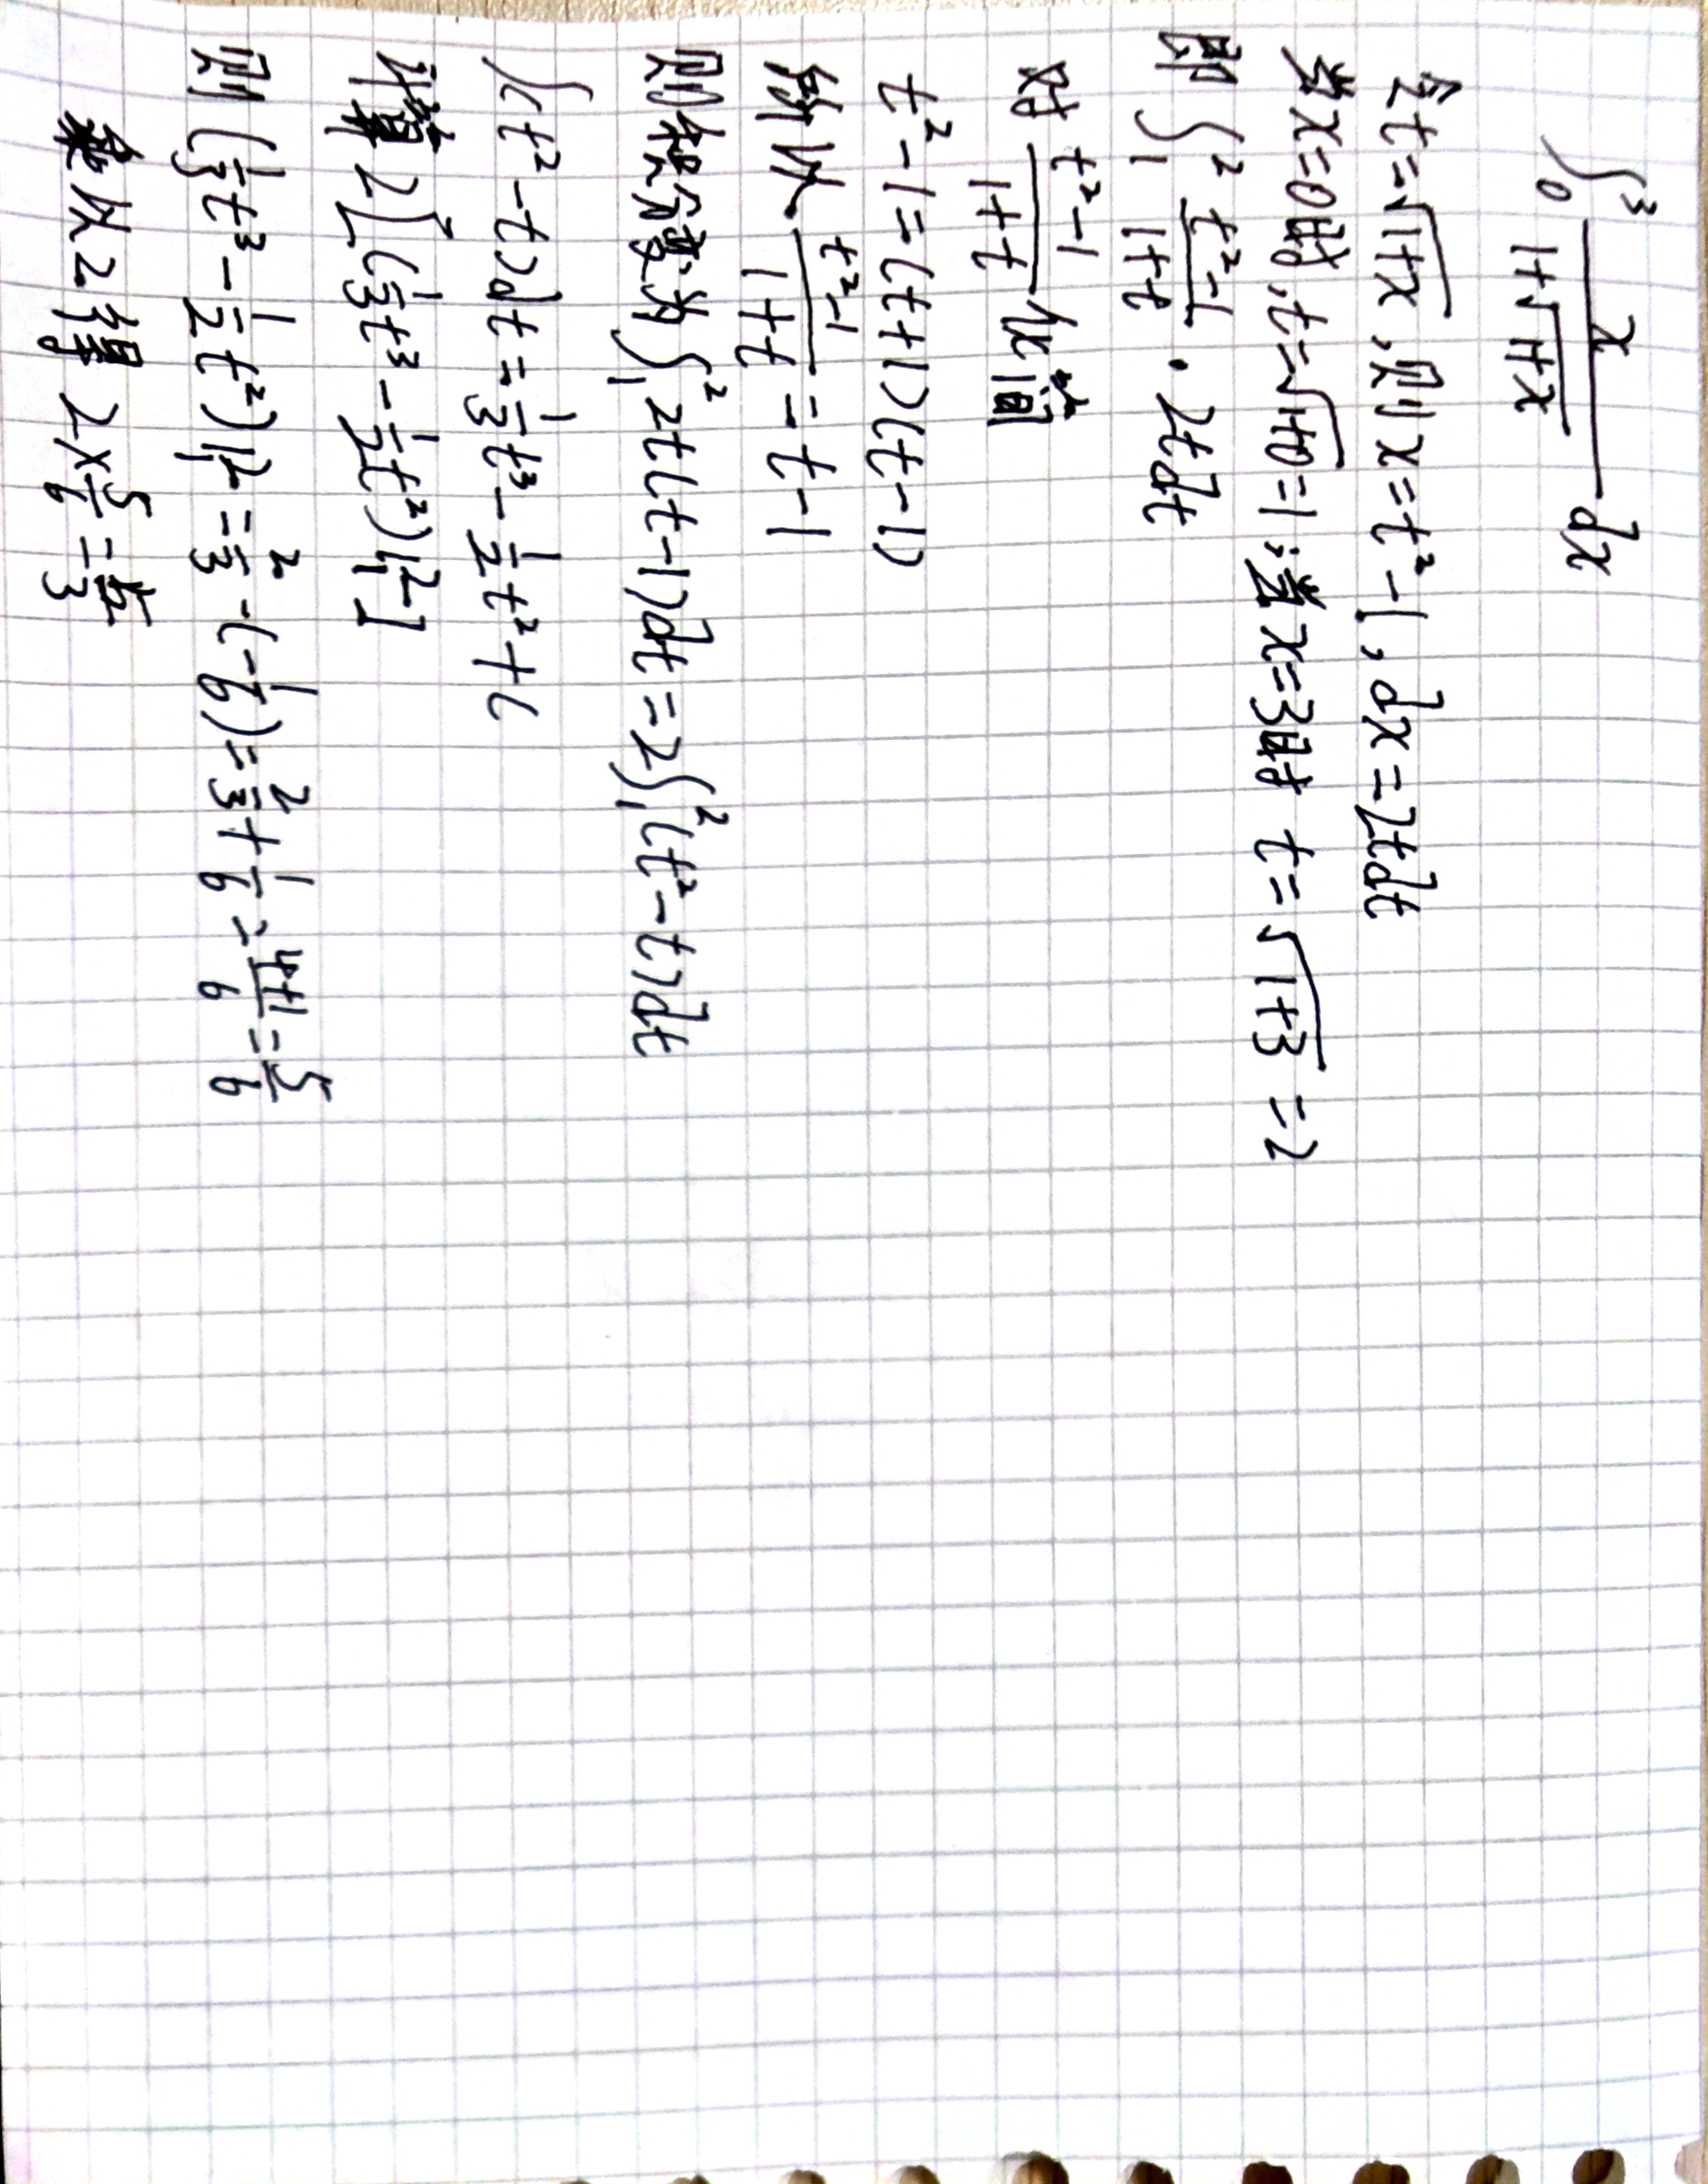 ∫₀³ x/(1+√(1+x)) dx
令t=√(1+x),则x=t²-1,dx=2tdt
当x=0时,t=√(1+0)=1;当x=3时 t=√(1+3)=2
即∫₁² (t²-1)/(1+t) · 2tdt
对 (t²-1)/(1+t) 化简
t²-1=(t+1)(t-1)
所以 (t²-1)/(1+t) = t-1
则积分变为∫₁² 2t(t-1)dt=2∫₁²(t²-t)dt
∫(t²-t)dt=1/3t³-1/2t²+C
计算2[(1/3t³-1/2t²)|₁²]
则(1/3t³-1/2t²)|₁²=2/3-(-1/6)=2/3+1/6=(4+1)/6=5/6
乘以2得 2×5/6=5/3